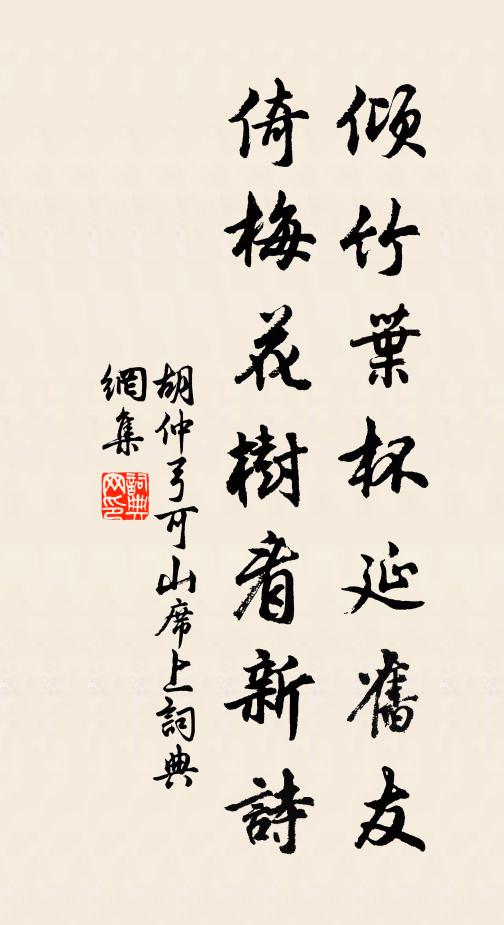 傾竹葉杯延舊友
倚梅花樹看新詩
胡仲弓可山席上詞典
網集
詞典网印